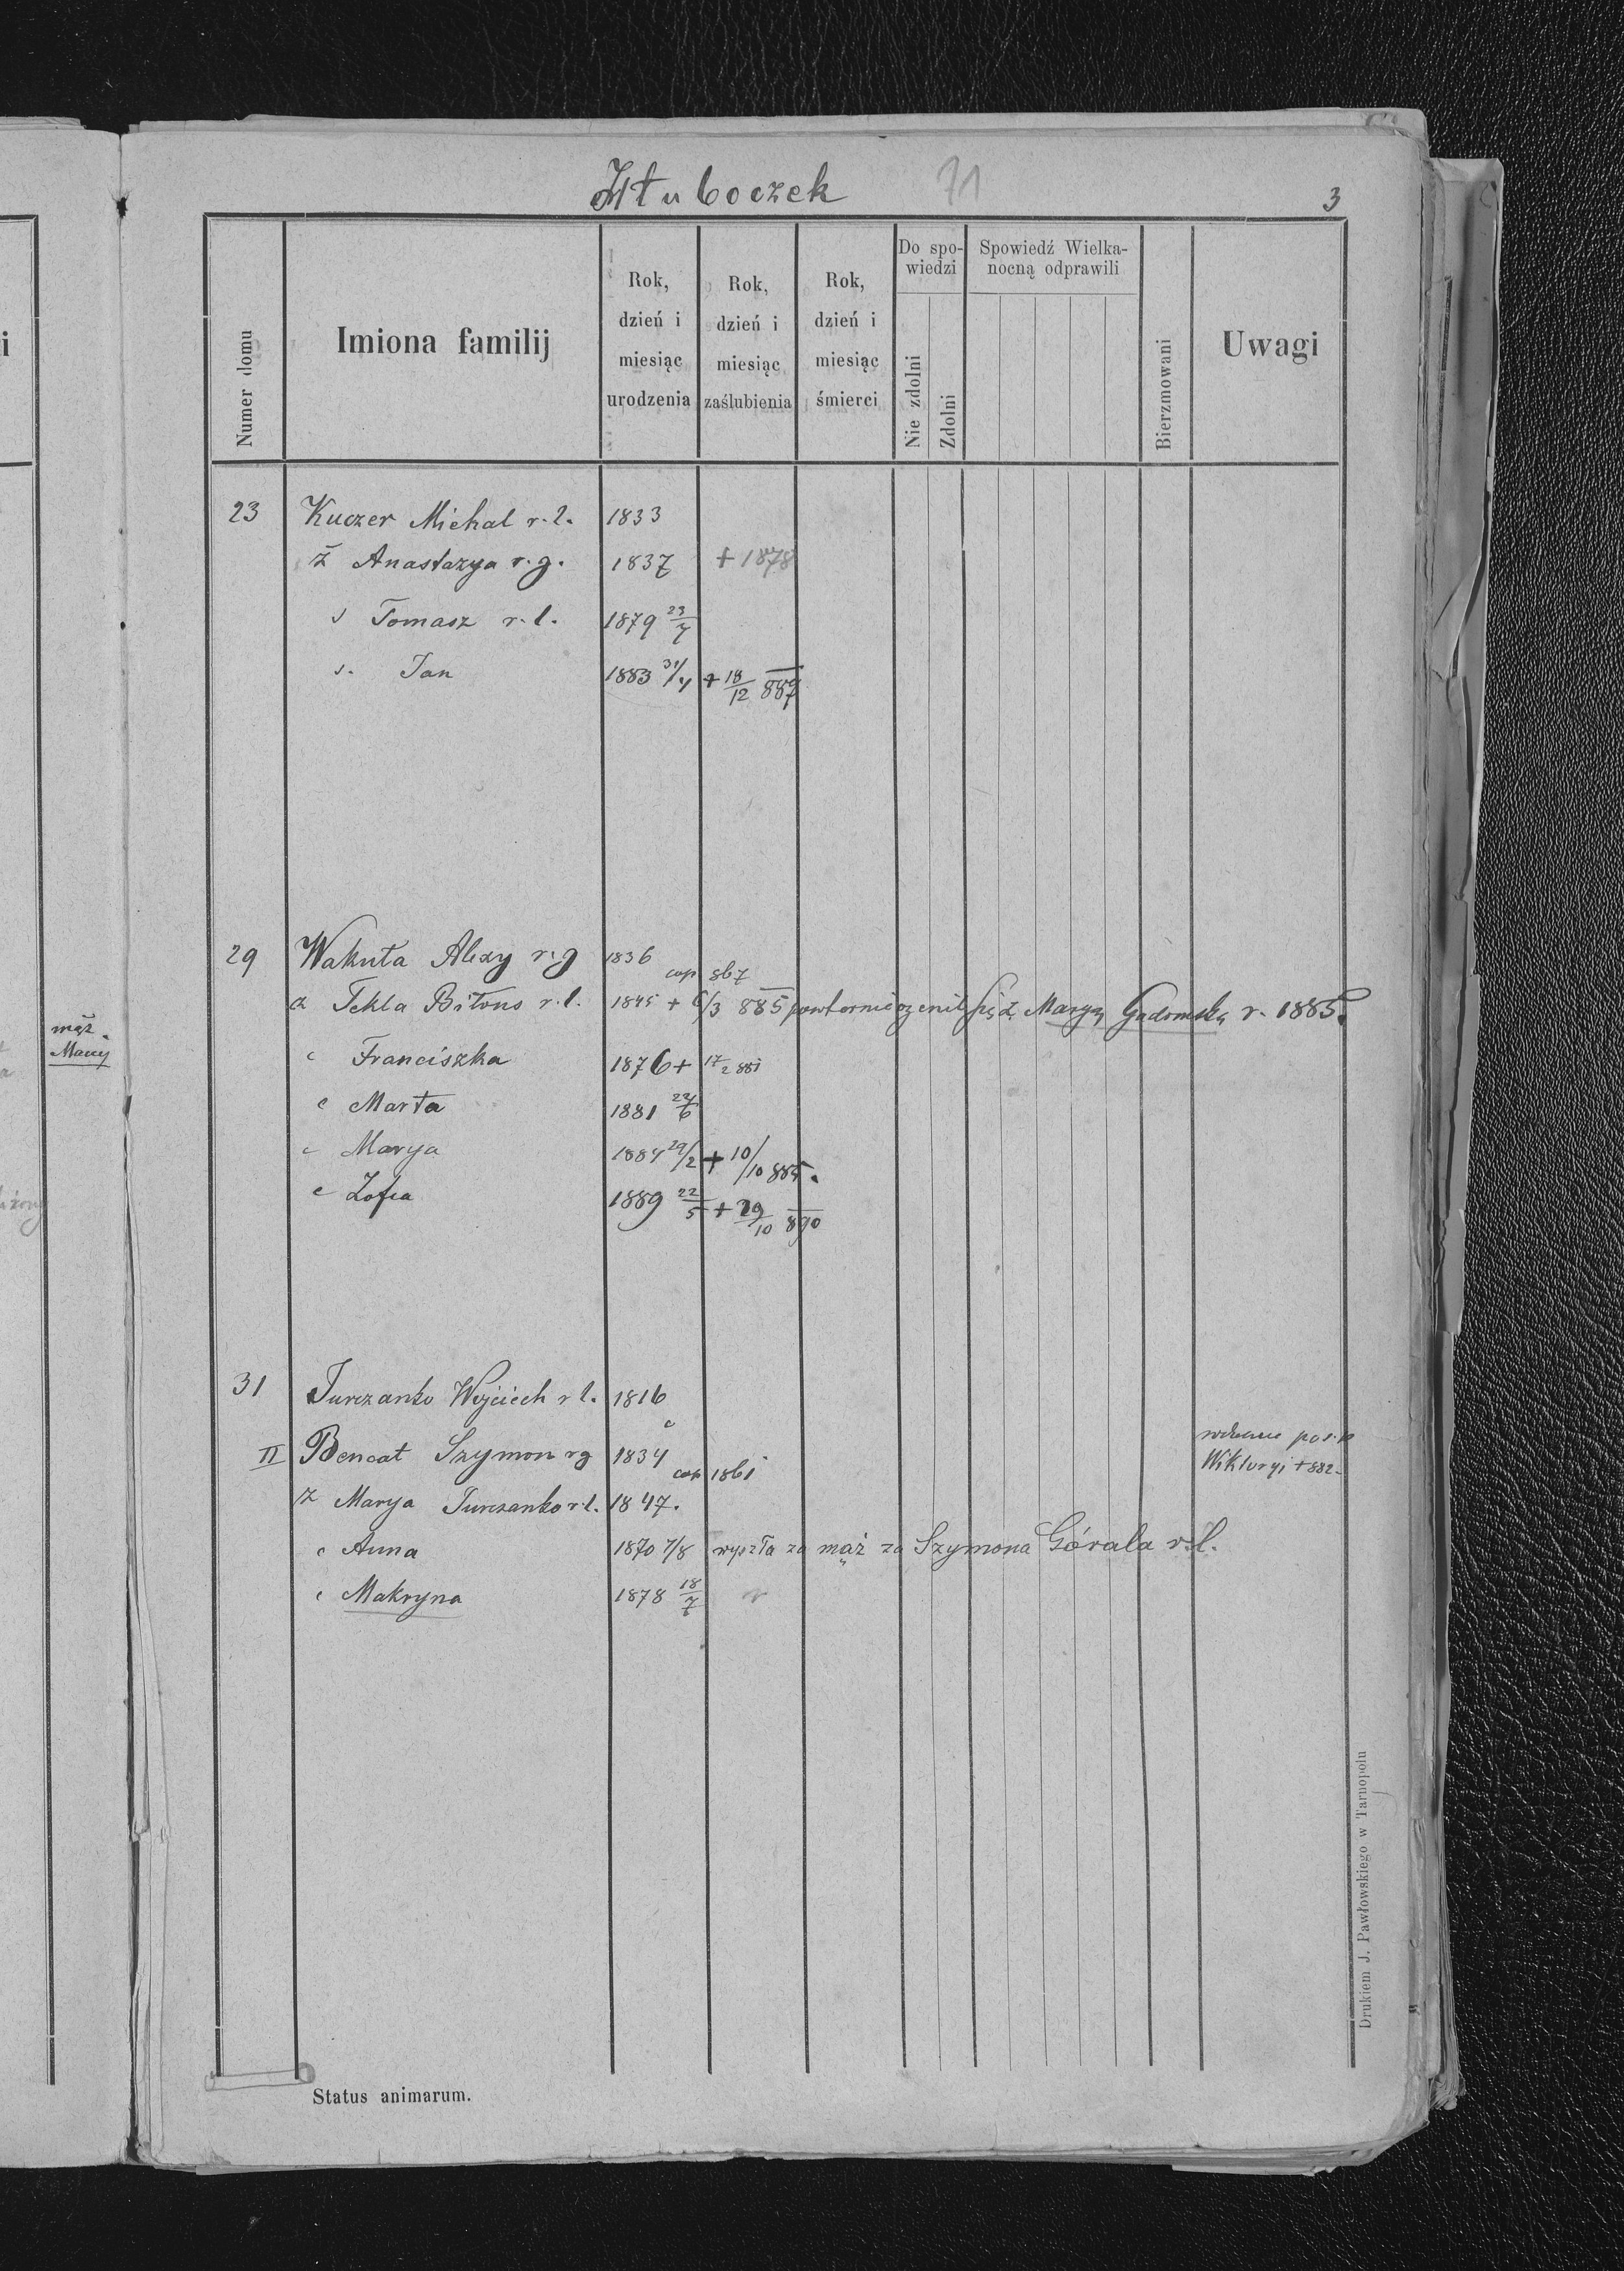 Hłuboczek 71 3
Numer domu
Imiona familij
Rok, dzień i miesiąc urodzenia
Rok, dzień i miesiąc zaślubienia
Rok, dzień i miesiąc śmierci
Do spo-
wiedzi
Nie zdolni
Zdolni
Spowiedź Wielka-
nocną odprawili
Bierzmowani
Uwagi
23 Kuczer Michal r. l. 1833
ż Anastazya r. g. 1837 + 1878
s Tomasz r. l. 1879 23/7
s. Jan 1883 31/4 + 18/12 887
29 Wakuta Alexy r. g 1836
cop 867
ż Tekla Bitous r. l. 1845 + 6/3 885 powtornie ożenił się z Maryą Gadomską r. 1885.
c Franciszka 1876 + 17/2 881
c Marta 1881 22/6
c Marya 1884 29/2 + 10/10 885.
c Zofia 1889 22/5 + 29/10 890
31 Turczanko Wojciech r l. 1816
II Bencat Szymon r g 1834
cop 1861
Wiktoryi + 882
ż Marya Turczanko r. l. 1847.
c Anna 1870 7/8 wyszła za mąż za Szymona Górala r. l.
c Makryna 1878 18/7
mąż
Maryi
i
Status animarum.
Drukiem J. Pawłowskiego w Tarnopolu